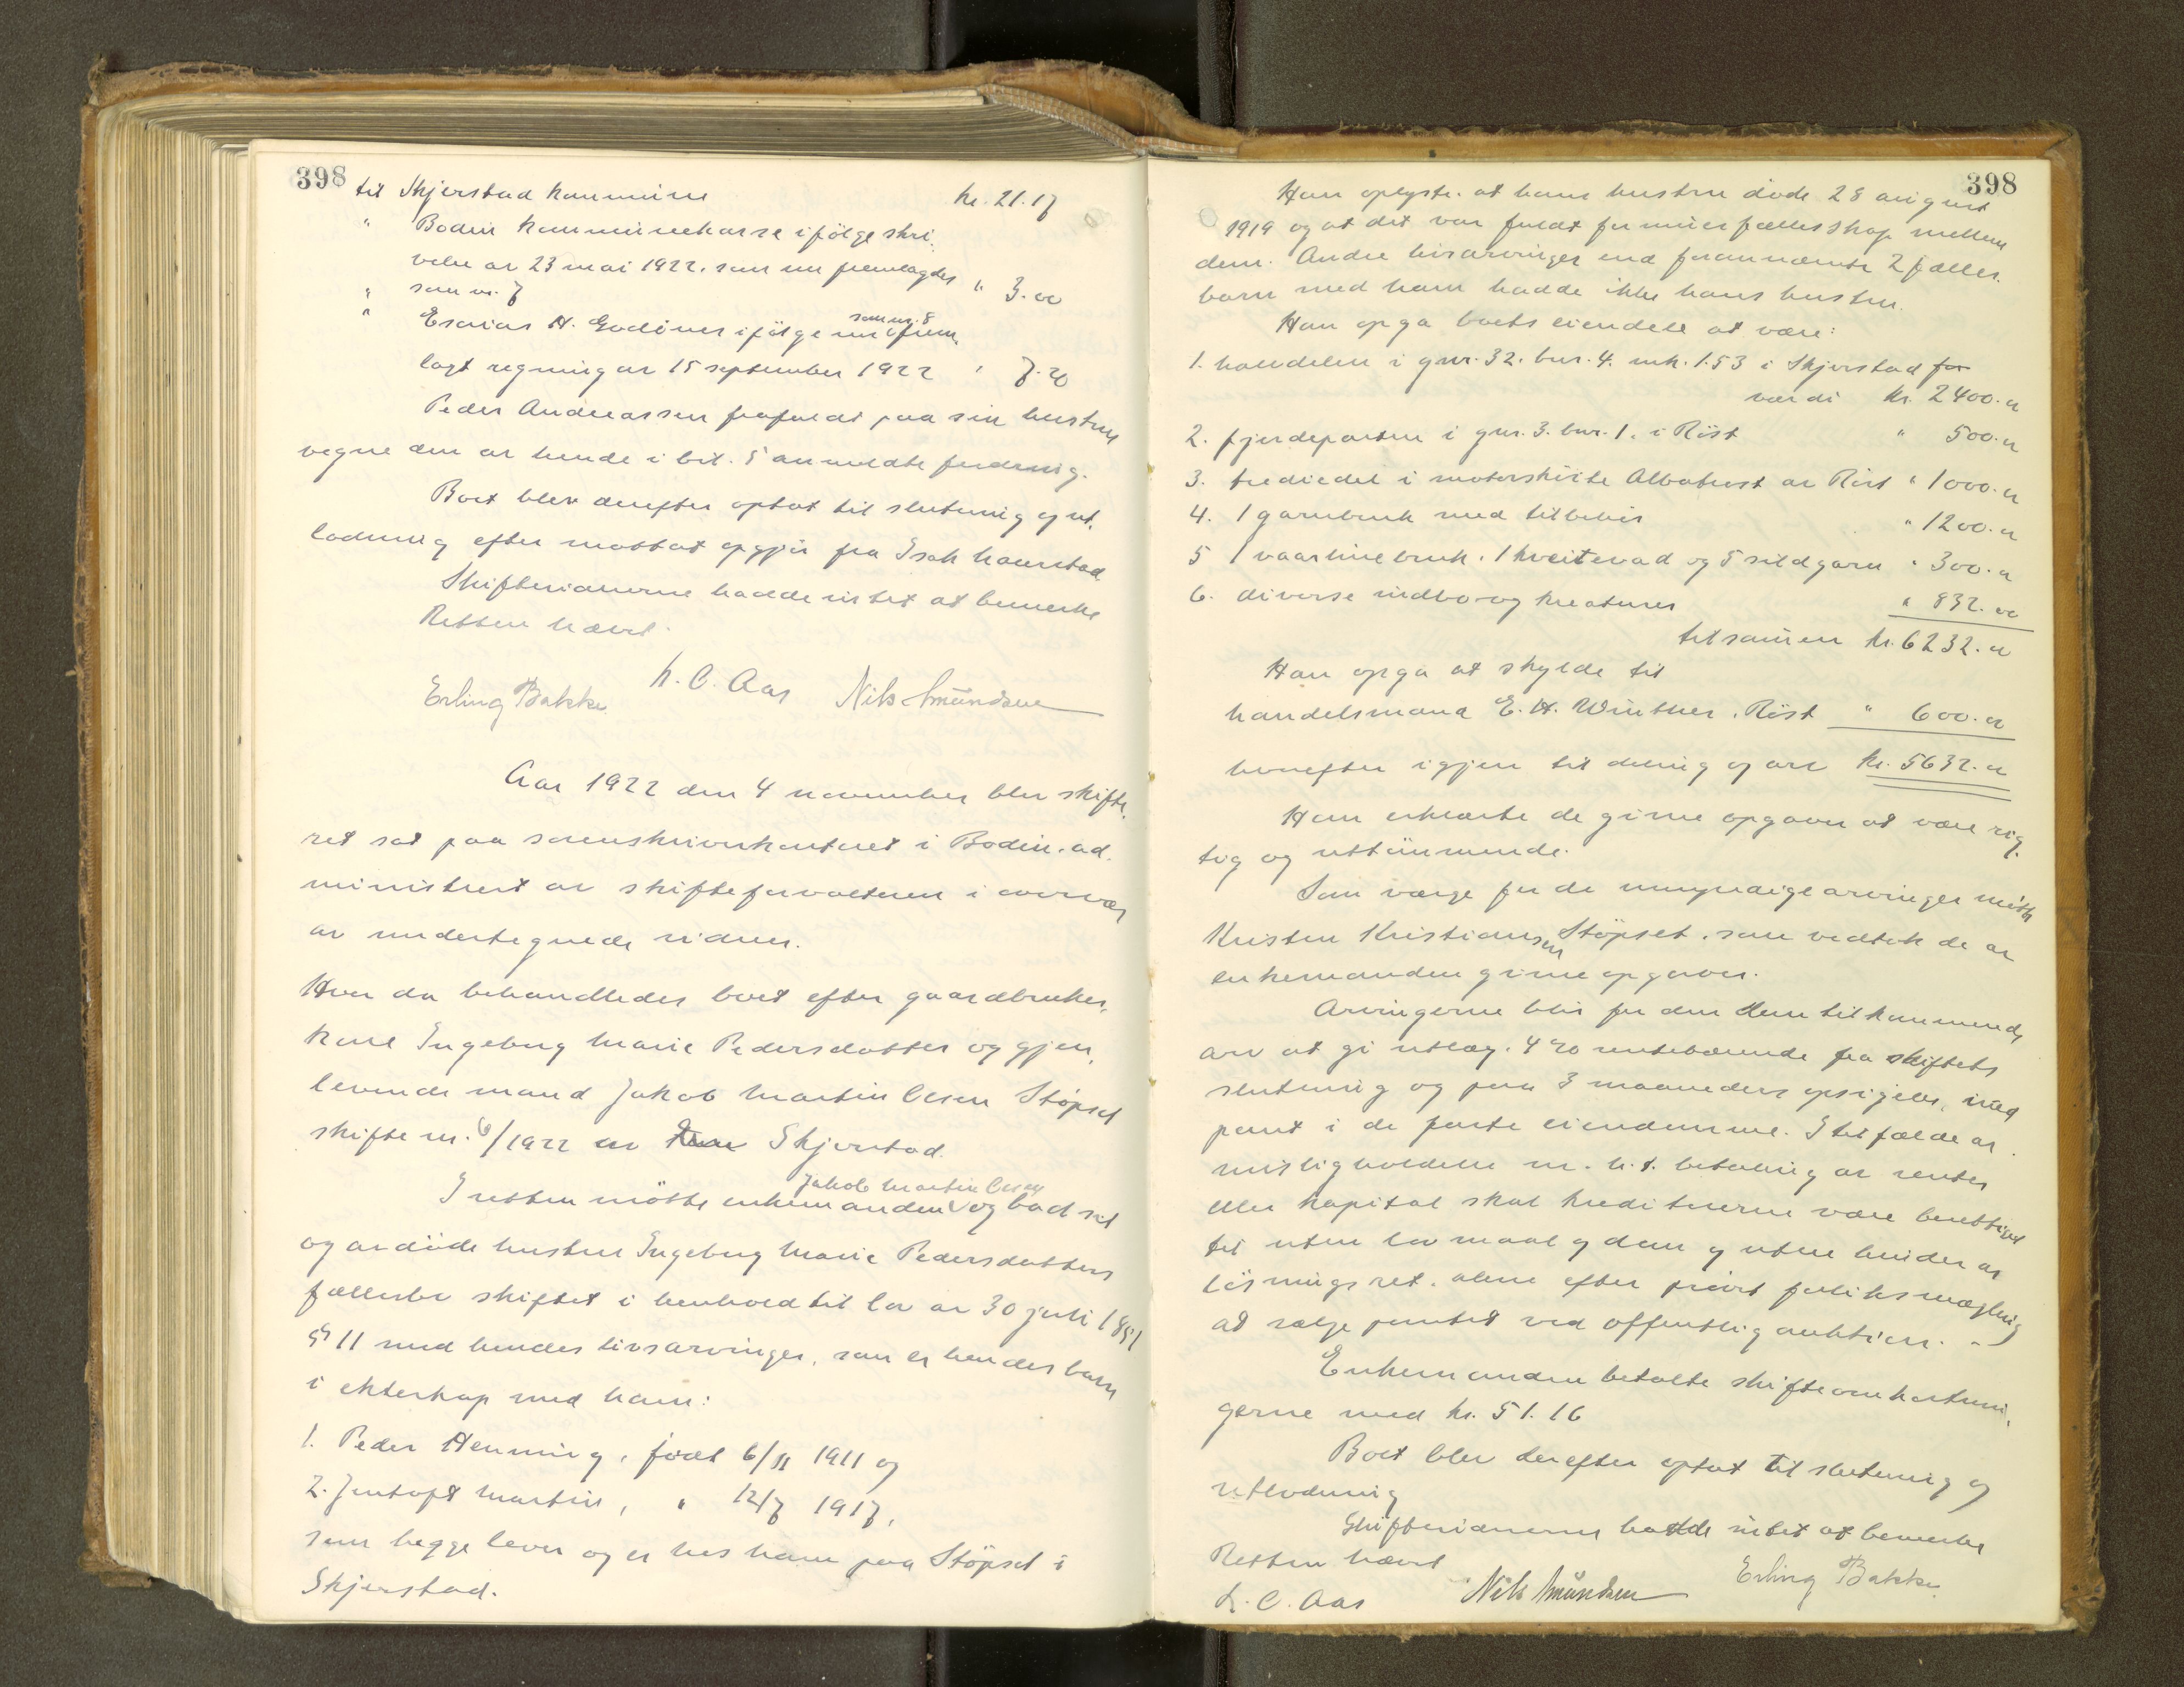 398
til Skjerstad kommune kr. 21.17
" Bodin kommunekasse ifölge skri-
velse av 23 mai 1922, som nu fremlagdes
" som nr. 7 " 3.00
" Esaias H. Godönes ifölge nu som nr. 8 frem-
lagt regning av 15 september 1922 " 7.20
Peder Andreassen frafaldt paa sin hustru
vegne den av hende i bil. 5 anmeldte fordring.
Boet blev derefter optat til slutning og ut-
lodning efter mottat opgjör fra Isak Naurstad
Skiftevidnerne hadde intet at bemerke
Retten hævet.
Erling Bakke K. C. Aas Nils Amundsen
Aar 1922 den 4 november blev skifte-
ret sat paa sorenskriverkontoret i Bodin, ad-
ministrert av skifteforvalteren i overvær
av undertegnede vidner.
Hvor da behandledes boet efter gaardbruker-
kone Ingeborg Marie Pedersdatter og gjen-
levende mand Jakob Martin Olsen Stöpset
skifte nr. 6/1922 av Skjerstad.
I retten mötte enkemanden Jakob Martin Olsen og bad sit
og avdöde hustru Ingeborg Marie Pedersdatters
fællesbo skiftet i henhold til lov av 30 juli 1851
§ 11 med hendes livsarvinger, som er hendes barn
i ekteskap med ham:
1. Peder Henning, födt 6/11 1911 og
2. Jentoft Martin, " 12/7 1917,
som begge lever og er hos ham paa Stöpset i
Skjerstad.
398
Han oplyste, at hans hustru döde 28 august
1919 og at det var fuldt formuesfællesskap mellem
dem. Andre livsarvinger end forannævnte 2 fælles-
barn med ham hadde ikke hans hustru.
Han opga boets eiendele at være:
1. halvdelen i gnr. 32. bnr. 4. mk. 1.53 i Skjerstad for
værdi kr. 2400.00
2. fjerdeparten i gnr. 3. bnr. 1. i Röst " 500.00
3. trediedel i motorsköite Albatrost av Röst " 1000.00
4. 1 garnbruk med tilbehör " 1200.00
5 1 vaarlinebruk, 1 kveitevad og 5 sildgarn " 300.00
6. diverse indbo og kreaturer " 832.00
tilsammen kr. 6232.00
Han opga at skylde til
handelsmand E. H. Winther, Röst " 600.00
hvorefter igjen til deling og arv kr. 5632.00
Han erklærte de givne opgaver at være rig-
tig og uttömmende.
Som værge for de umyndige arvinger mötte
Kristen Kristiansen Stöpset, som vedtok de av
enkemanden givne opgaver.
Arvingerne blir for den dem tilkommende
arv at gi utlæg, 4 % rentebærende fra skiftets
slutning og paa 3 maaneders opsigelse, med
pant i de faste eiendomme. I tilfælde av
misligholdelse m. h. t. betaling av renter
eller kapital skal kreditorerne være berettiget
til uten lovmaal og dom og uten hinder av
lösningsret, alene efter prövet forliksmægling
at sælge pantet ved offentlig auktion. -
Enkemanden betalte skifteomkostnin-
gerne med kr. 51.16
Boet blev derefter optat til slutning og
utlodning
Skiftevidnerne hadde intet at bemerke
Retten hævet
K. C. Aas Nils Amundsen Erling Bakke